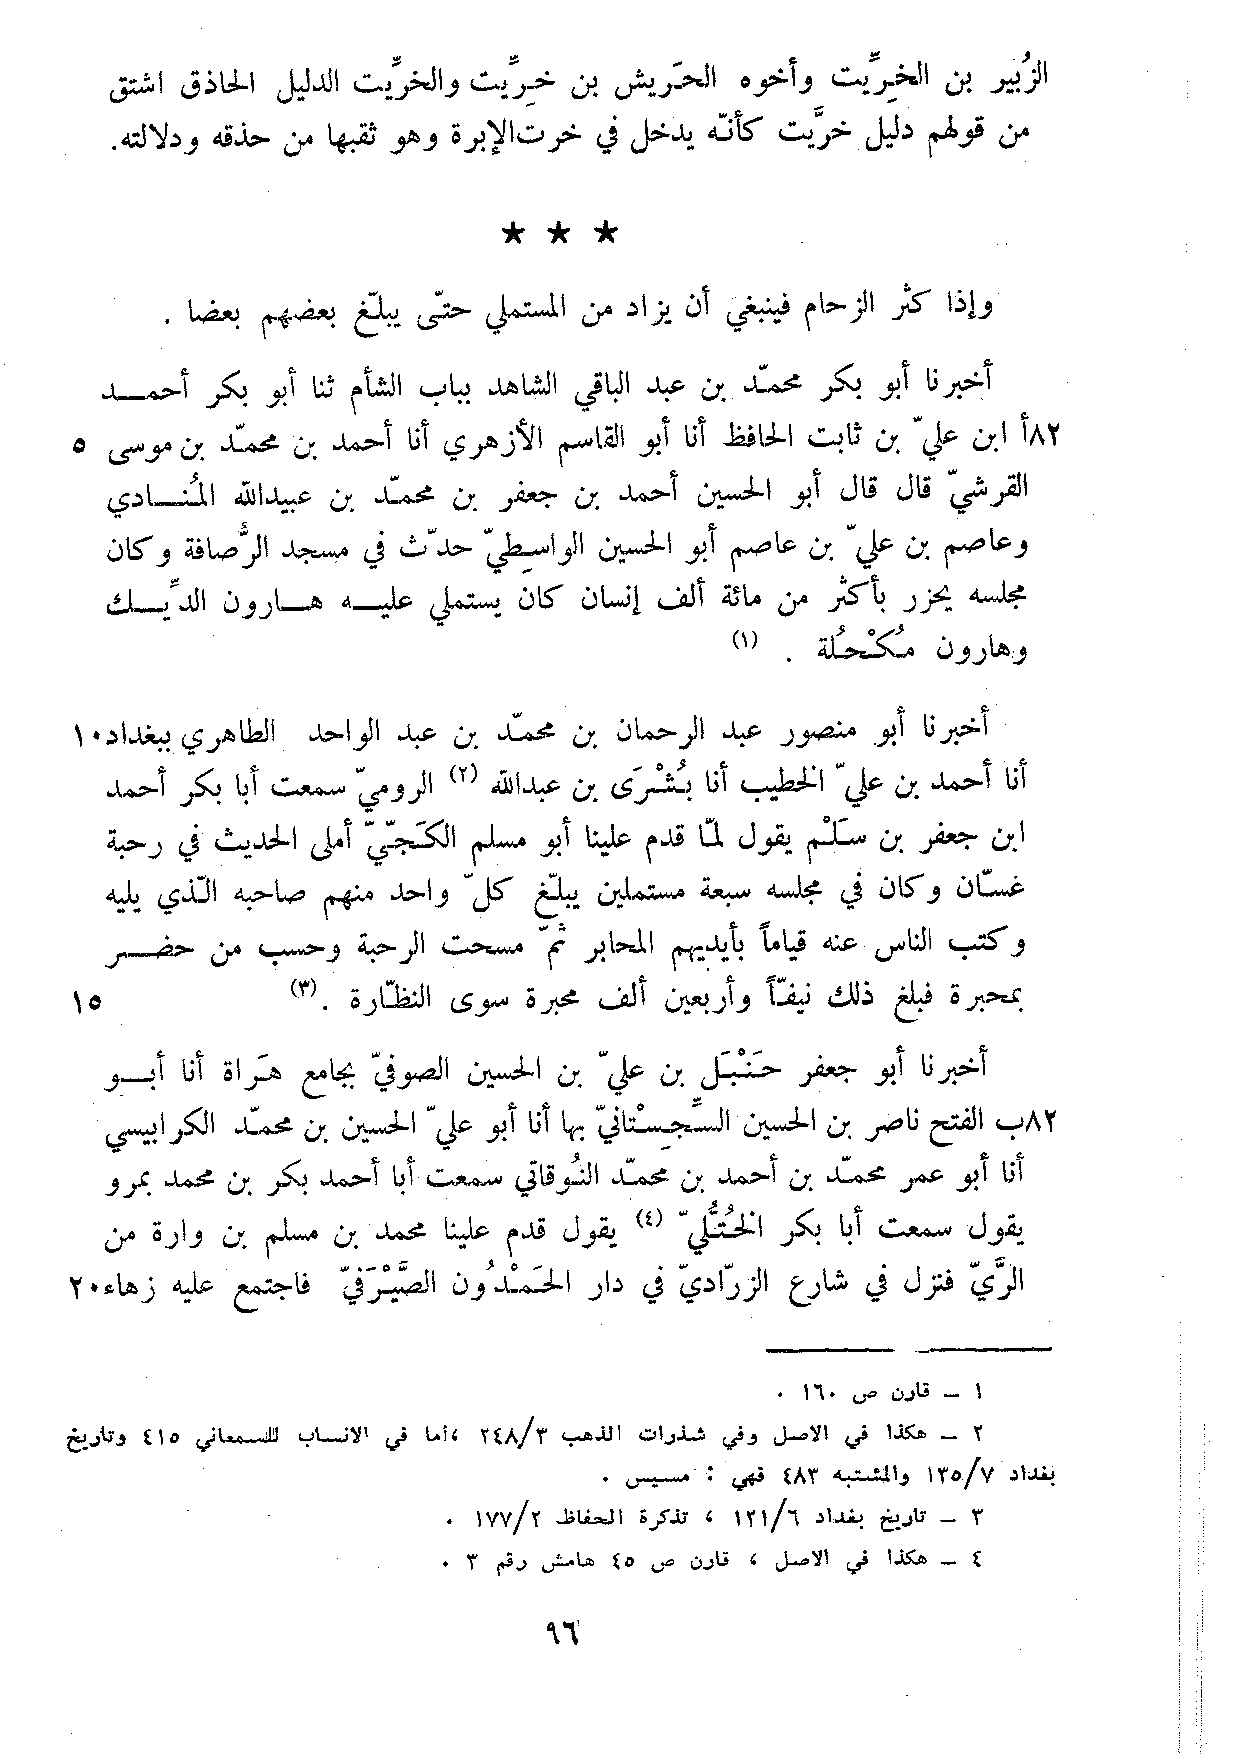 الزُبير بن الخِرِّيت وأخوه الحَريش بن خِرِّيت والخرِّيت الدليل الحاذق اشتق
من قولهم دليل خرِّيت كأنّه يدخل في خرت الإبرة وهو ثقبها من حذقه ودلالته.
★ ★ ★
وإذا كثُر الزحام فينبغي أن يزاد من المستملي حتّى يبلّغ بعضهم بعضا .
أخبرنا أبو بكر محمّد بن عبد الباقي الشاهد بباب الشأم ثنا أبو بكر أحمـــد
٨٢أ ابن عليّ بن ثابت الحافظ أنا أبو القاسم الأزهري أنا أحمد بن محمّد بن موسى ٥
القرشيّ قال قال أبو الحسين أحمد بن جعفر بن محمّد بن عبيدالله المُنـــادي
وعاصم بن عليّ بن عاصم أبو الحسين الواسِطيّ حدّث في مسجد الرُّصافة وكان
مجلسه يحزر بأكثر من مائة ألف إنسان كان يستملي عليــه هــارون الدِّيــك
وهارون مُكْحُلة . (١)
أخبرنا أبو منصور عبد الرحمان بن محمّد بن عبد الواحد الطاهري ببغداد ١٠
أنا أحمد بن عليّ الخطيب أنا بُشْرَى بن عبدالله (٢) الروميّ سمعت أبا بكر أحمد
ابن جعفر بن سَلْم يقول لمّا قدم علينا أبو مسلم الكَجّيّ أملى الحديث في رحبة
غسّان وكان في مجلسه سبعة مستملين يبلّغ كلّ واحد منهم صاحبه الّذي يليه
وكتب الناس عنه قياماً بأيديهم المحابر ثمّ مسحت الرحبة وحسب من حضــر
بمحبرة فبلغ ذلك نيفّاً وأربعين ألف محبرة سوى النظّارة . (٣) ١٥
أخبرنا أبو جعفر حَنْبَل بن عليّ بن الحسين الصوفيّ بجامع هَراة أنا أبــو
٨٢ب الفتح ناصر بن الحسين السِّجِسْتانيّ بها أنا أبو عليّ الحسين بن محمّد الكرابيسي
أنا أبو عمر محمّد بن أحمد بن محمّد النُوقاتي سمعت أبا أحمد بكر بن محمد بمرو
يقول سمعت أبا بكر الخُتُّليّ (٤) يقول قدم علينا محمد بن مسلم بن وارة من
الرَّيّ فنزل في شارع الزرّاديّ في دار الحَمْدُون الصَّيْرَفيّ فاجتمع عليه زهاء ٢٠
١ – قارن ص ١٦٠ .
٢ – هكذا في الاصل وفي شذرات الذهب ٢٤٨/٣ ،أما في الانساب للسمعاني ٤١٥ وتاريخ
بغداد ١٣٥/٧ والمشتبه ٤٨٣ فهي : مسيس .
٣ – تاريخ بغداد ١٢١/٦ ، تذكرة الحفاظ ١٧٧/٢ .
٤ – هكذا في الاصل ، قارن ص ٤٥ هامش رقم ٣ .
٩٦